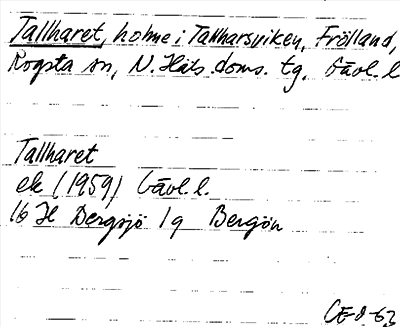 Tallharet, holme i Tallharsviken, Frölland,
Rogsta sn, N. Häls. doms. tg, Gävl. l
Tallharet
ek (1959) Gävl. l.
16 H Bergsjö 1g Bergön